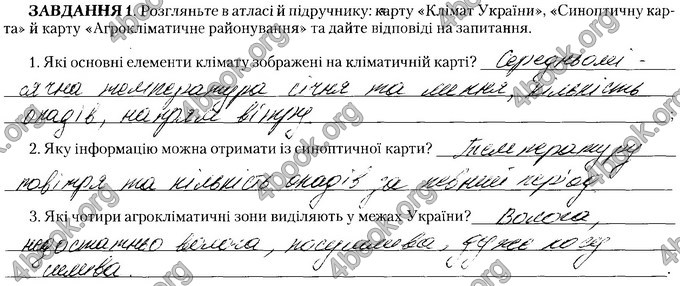 ЗАВДАННЯ 1. Розгляньте в атласі й підручнику: карту «Клімат України», «Синоптичну кар-
та» й карту «Агрокліматичне районування» та дайте відповіді на запитання.
1. Які основні елементи клімату зображені на кліматичній карті? Середньомі-
сячна температура січня та липня, кількість
опадів, напрям вітру.
2. Яку інформацію можна отримати із синоптичної карти? Температуру
повітря та кількість опадів за певний період
3. Які чотири агрокліматичні зони виділяють у межах України? Волога,
недостатньо волога, посушлива, дуже посу
шлива.
4book.org
4book.org
4book.org
4book.org
4book.org